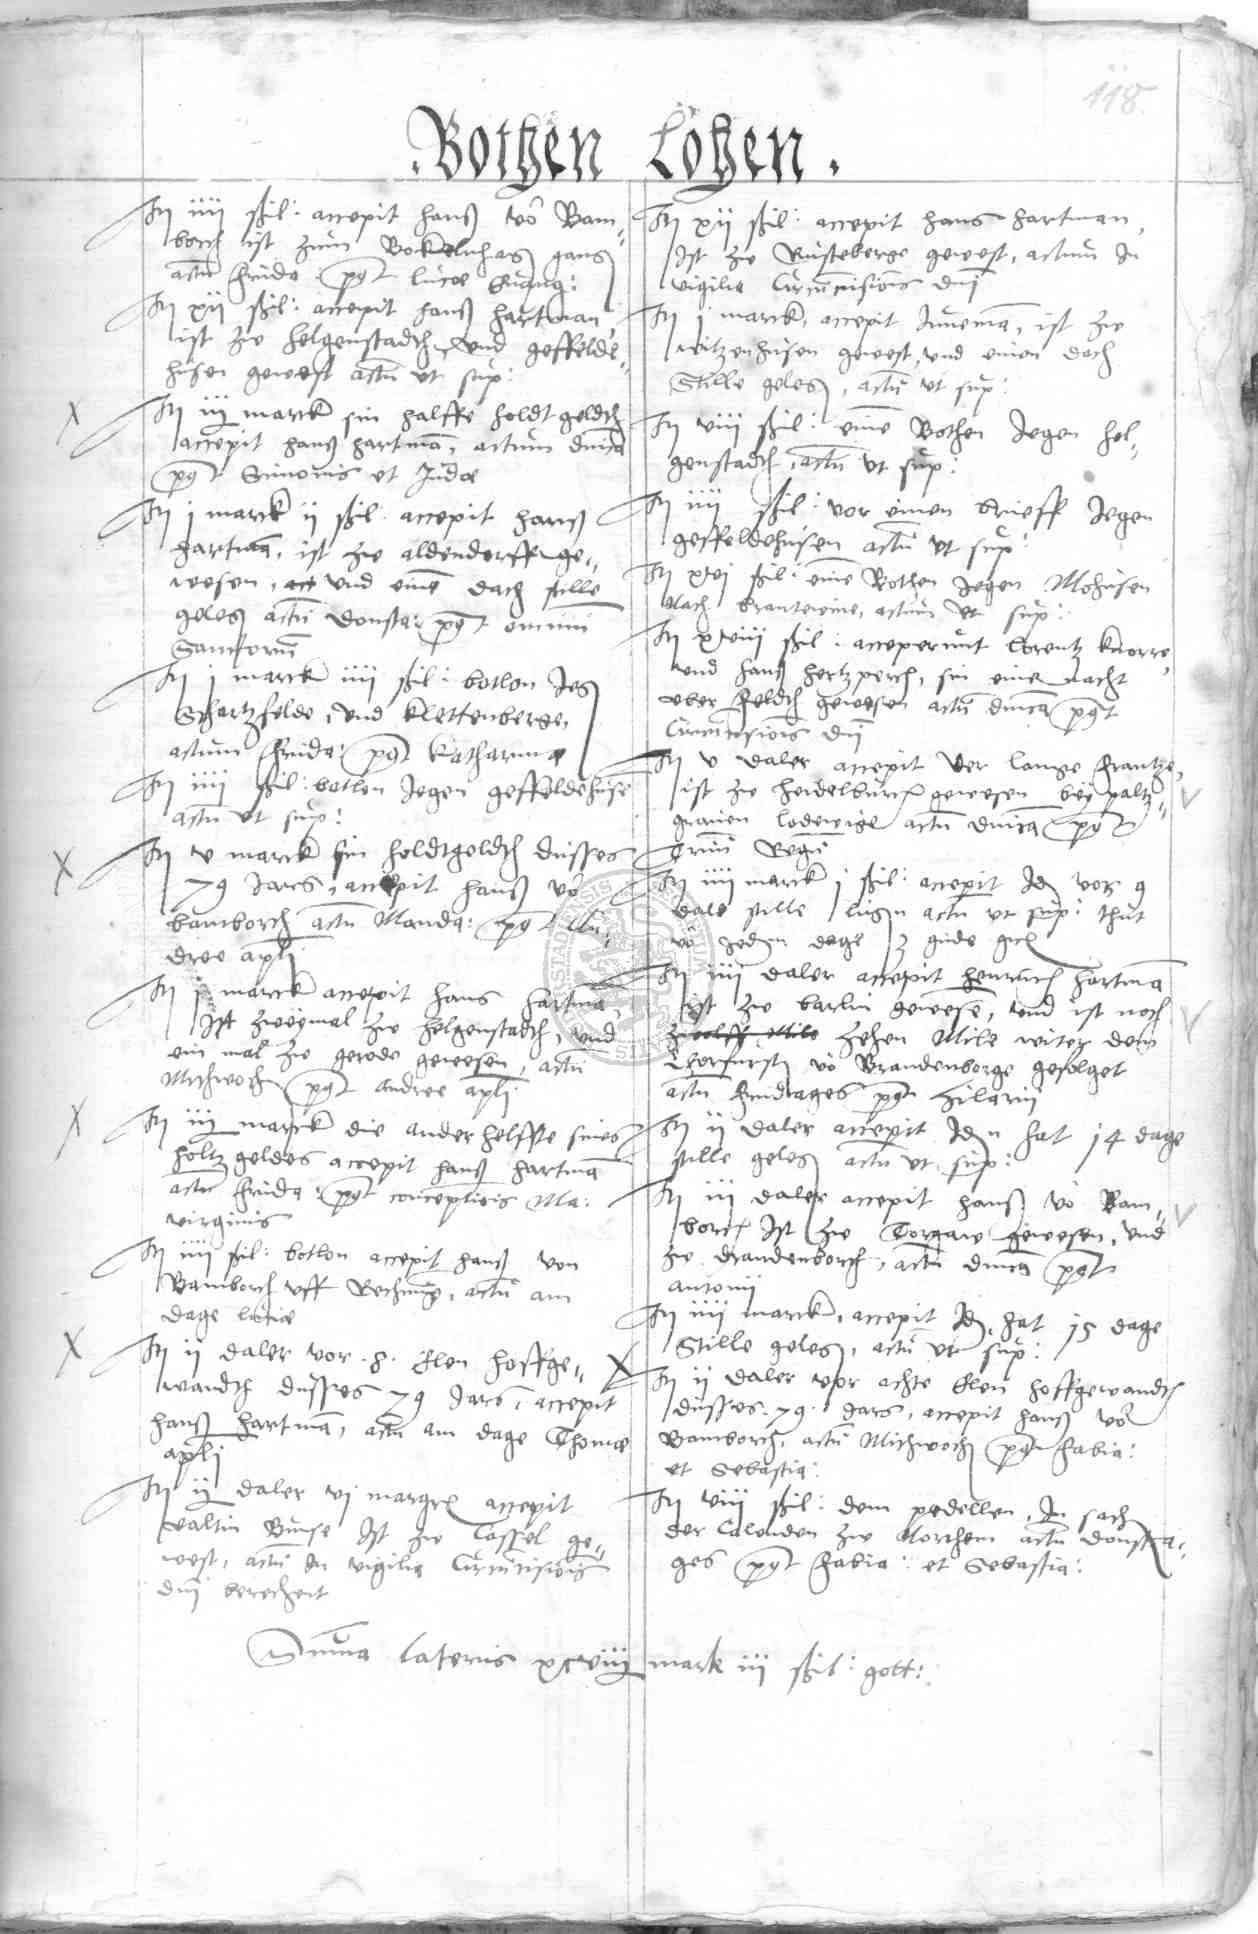 118.
Bothen Löhen.
It iiii ßil: accepit hanß vō Bam=
borch ist zum Bokelnhag gang
actū frida: pꝰt Luce Evang:
It xii ßil: accepit hanß hartman
ist zw helgenstadth vnd geffelde=
husen gewest actū vt sup:
It iii marck sin halffe holdt geldth
accepit hanß hartmā, actum dnica
pꝰt Simonis et Judæ
It j marck ii ßil. accepit hanß
hartmā, ist zw aldendorff ge=
wesen, vnd eine dach stille
geleg actū donsta: pꝰt omniū
Sanctorū
It j marck iiii ßil: botlon Jeg
Schartzfelde, vnd Klettenberge,
actum frida: pꝰt Katharinæ
It iiii ßil: botlon Jegen geffeldehuse
actū vt sup:
It v marck sin holdtgeldth dusses
79 Jars, accepit hanß vō
bamborch actū Manda: pꝰt An=
dree apli
It j marck accepit hans hartmā,
Ist zweymal zw helgenstadth, vnd
ein mal zw gerode gewesen, actū
Michwoch pꝰt andree apli
It iii marck die ander helffte sines
holtz geldes accepit hanß hartmā
actū frida: pꝰt conceptiois Ma:
virginis
It iiii ßil: botlon accepit hanß von
Bamborch vff Rechnūg, actū am
dage luciæ
It ii daler vor .8. Elen hoffge=
wandth dusses 79 Jars, accepit
hanß hartmā, actū am dage Thomæ
apli
It ii daler vi margr accepit
valtin Bunse Ist zw Cassel ge=
west, actū In vigilia Circūcisiōis
dnj berechent
It xii ßil: accepit hans hartman,
Ist zw Rusteberge gewest, actum In
vigilia Circūcisiōis dnj
It j marck, accepit Junemā, ist zw
witzenhusen gewest, vnd einen dach
Stille geleg, actū vt sup:
It viii ßil: eine Bothen Jegen hel=
genstadth, actū vt sup:
It iiii ßil: vor einen brieff Jegen
geffeldehusen actū vt sup:
It xvi ßil: eine Bothen Jegen Mohusen
Nach brantewine, actum vt sup:
It xviii ßil: acceperunt Lorentz Knorre,
vnd hanß hertzperch, sin eine nacht
vber feldth gewesen actū dnica pꝰt
Circūcisiōis dnj
It v daler accepit der lange frantze,
ist zw heidelburch gewesen bey paltz=
grauen lodewige actū dnica pꝰt
Triū Regū
It iiii marck j ßil: accepit Id vor 9
dale stille ligen actū vt sup: thut
vō jedem dage
It iiii daler accepit henrich hartmā
ist zw barlin gewesē, vnd ist noch
zwolff Mile zehen Mile witer dem
Chorfurst vō Brandenborge gefolget
actū frudages pꝰt Hilarij
It ii daler accepit Idē hat 14 dage
stille geleg actū vt sup:
It iii daler accepit hanß vō Bam=
borch Ist zw Torgaw gewesen, vnd
zw Brandenborch, actū dnica pꝰt
Antonij
It iiii marck, accepit Id, hat 15 dage
Stille geleg, actū vt sup:
It ii daler vor achte Elen hoffgewandth
dusses .79. Jars, accepit hanß vō
Bamborch, actū Michwoch pꝰt Fabia:
et Sebastia:
It viii ßil: dem pedellen, In sach
der Calenden zw Northem actū donsta=
ges pꝰt Fabia: et Sebastia:
Summa lateris xlviii mark iii ßil: gott: